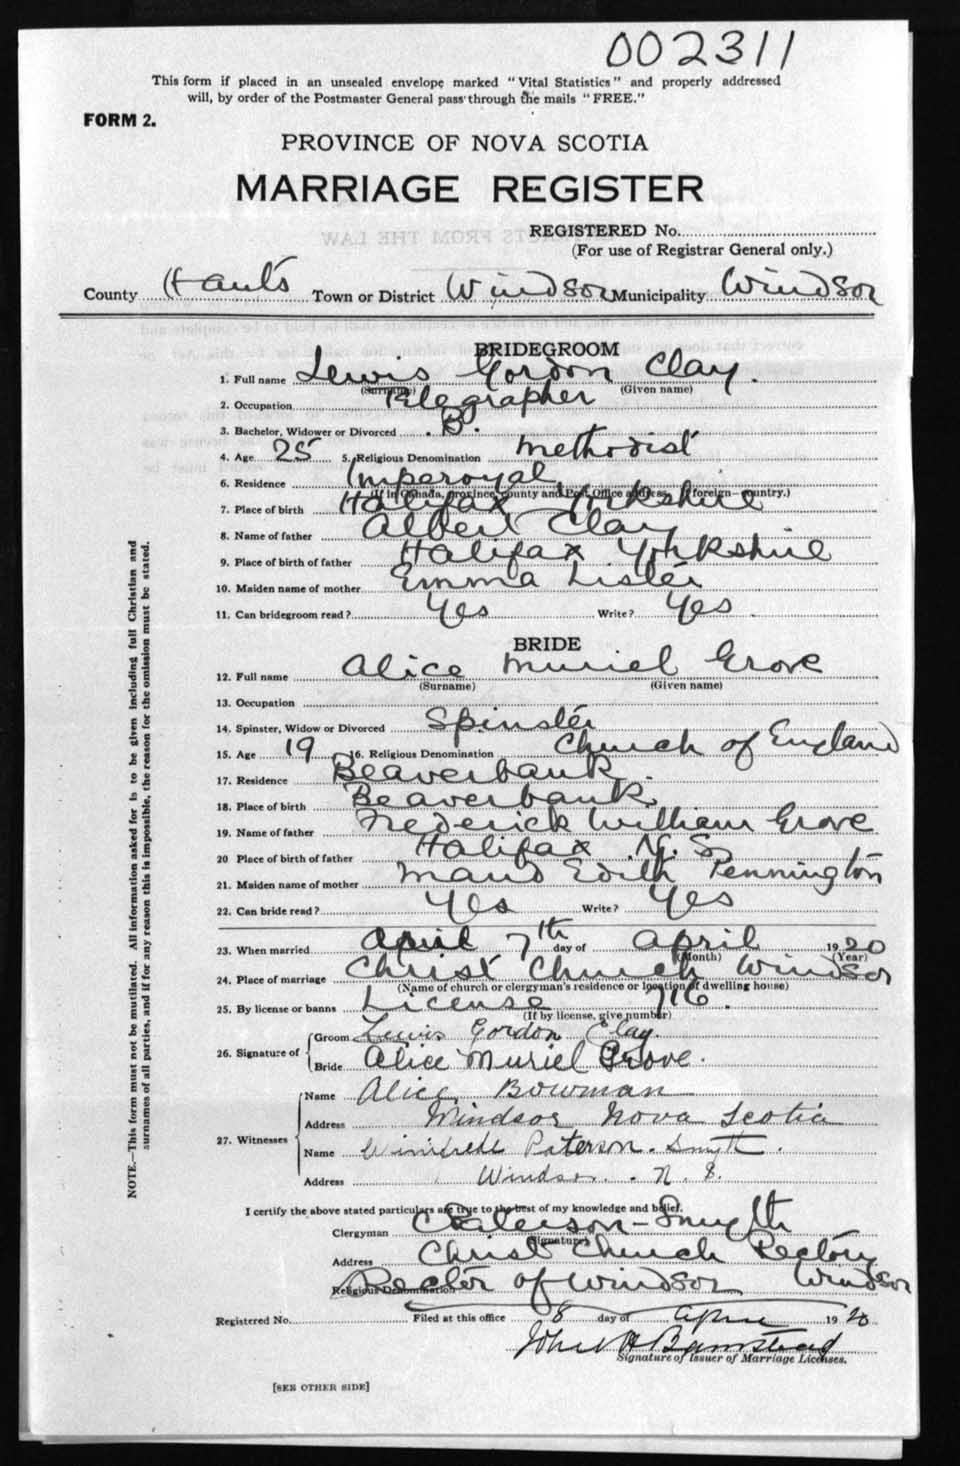 002311
This form if placed in an unsealed envelope marked "Vital Statistics" and properly addressed
will, by order of the Postmaster General pass through the mails "FREE."
FORM 2.
PROVINCE OF NOVA SCOTIA
MARRIAGE REGISTER
REGISTERED No.
(For use of Registrar General only.)
County Hants Town or District Windsor Municipality Windsor
BRIDEGROOM
1. Full name Lewis Gordon Clay.
(Surname) (Given name)
2. Occupation Telegrapher
3. Bachelor, Widower or Divorced B.
4. Age 25 5. Religious Denomination Methodist
6. Residence Imperoyal
(If in Canada, province, county and Post Office address, if foreign—country.)
7. Place of birth Halifax Yorkshire
8. Name of father Albert Clay
9. Place of birth of father Halifax Yorkshire
10. Maiden name of mother Emma Lister
11. Can bridegroom read? Yes Write? Yes
BRIDE
12. Full name Alice Muriel Grove
(Surname) (Given name)
13. Occupation
14. Spinster, Widow or Divorced Spinster
15. Age 19 16. Religious Denomination Church of England
17. Residence Beaverbank.
18. Place of birth Beaverbank
19. Name of father Frederick William Grove
20 Place of birth of father Halifax N.S
21. Maiden name of mother Maud Edith Pennington
22. Can bride read? Yes Write? Yes
23. When married April 7th day of April 1920
(Month) (Year)
24. Place of marriage Christ Church Windsor
(Name of church or clergyman's residence or location of dwelling house)
25. By license or banns License 716.
(If by license, give number)
26. Signature of Groom Lewis Gordon Clay.
Bride Alice Muriel Grove.
27. Witnesses
Name Alice Bowman
Address Windsor Nova Scotia
Name Winifrede Paterson-Smyth.
Address Windsor. N.S.
I certify the above stated particulars are true to the best of my knowledge and belief.
Clergyman Paterson-Smyth
(Signature)
Address Christ Church Rectory
Windsor
Religious Denomination Rector of Windsor
Registered No. Filed at this office 8 day of April 1920
John H Bamstead
Signature of Issuer of Marriage Licenses.
[SEE OTHER SIDE]
NOTE.—This form must not be mutilated. All information asked for is to be given including full Christian and
surnames of all parties, and if for any reason this is impossible, the reason for the omission must be stated.